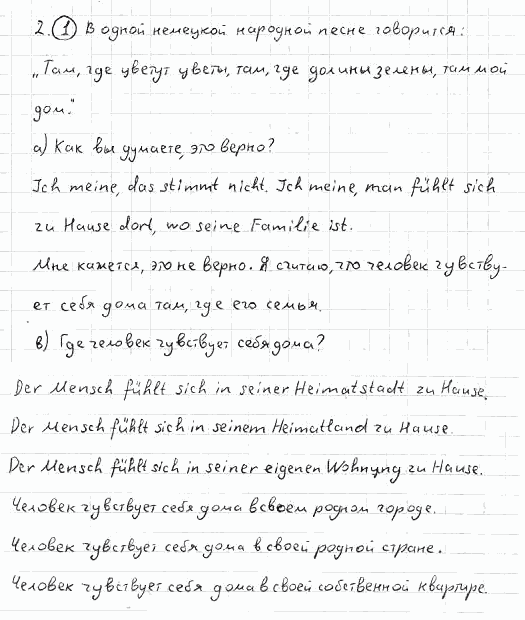 2. 1 В одной немецкой народной песне говорится:
„Там, где цветут цветы, там, где долины зелены, там мой
дом."
а) Как вы думаете, это верно?
Ich meine, das stimmt nicht. Ich meine, man fühlt sich
zu Hause dort, wo seine Familie ist.
Мне кажется, это не верно. Я считаю, что человек чувству-
ет себя дома там, где его семья.
в) Где человек чувствует себя дома?
Der Mensch fühlt sich in seiner Heimatstadt zu Hause.
Der Mensch fühlt sich in seinem Heimatland zu Hause.
Der Mensch fühlt sich in seiner eigenen Wohnung zu Hause.
Человек чувствует себя дома в своем родном городе.
Человек чувствует себя дома в своей родной стране.
Человек чувствует себя дома в своей собственной квартире.